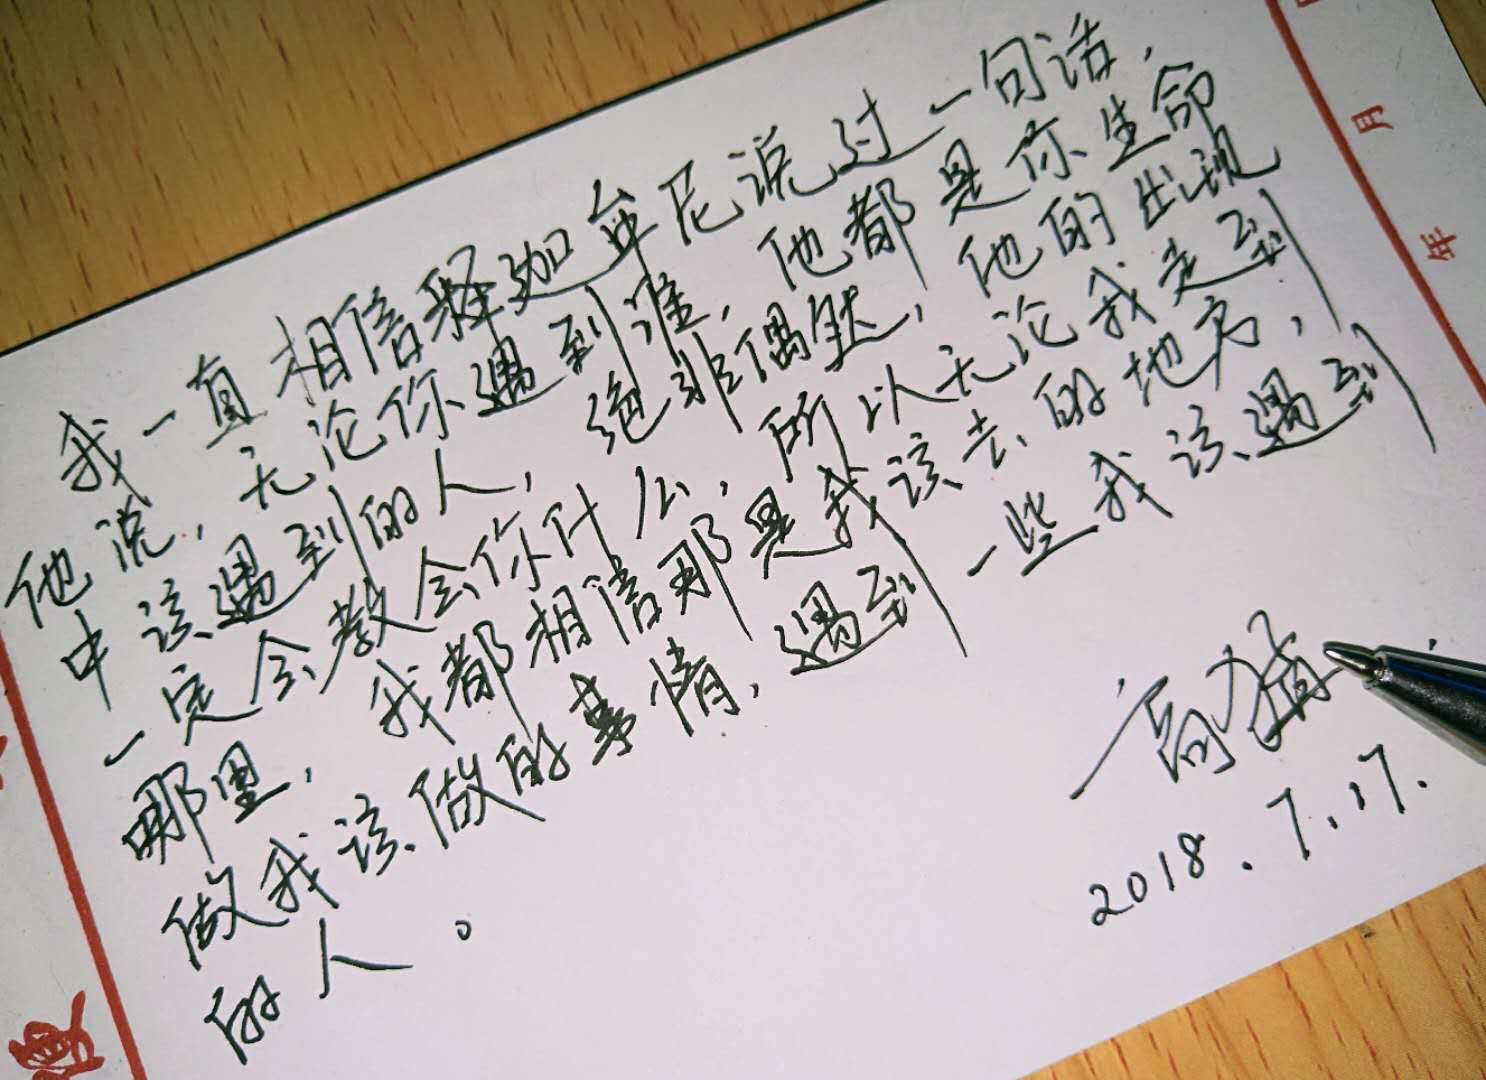 我一直相信释迦牟尼说过一句话，
他说，无论你遇到谁，他都是你生命
中该遇到的人，绝非偶然，他的出现
一定会教会你什么，所以无论我走到
哪里，我都相信那是我该去的地方，
做我该做的事情，遇到一些我该遇到
的人。
2018.7.17.
月
年